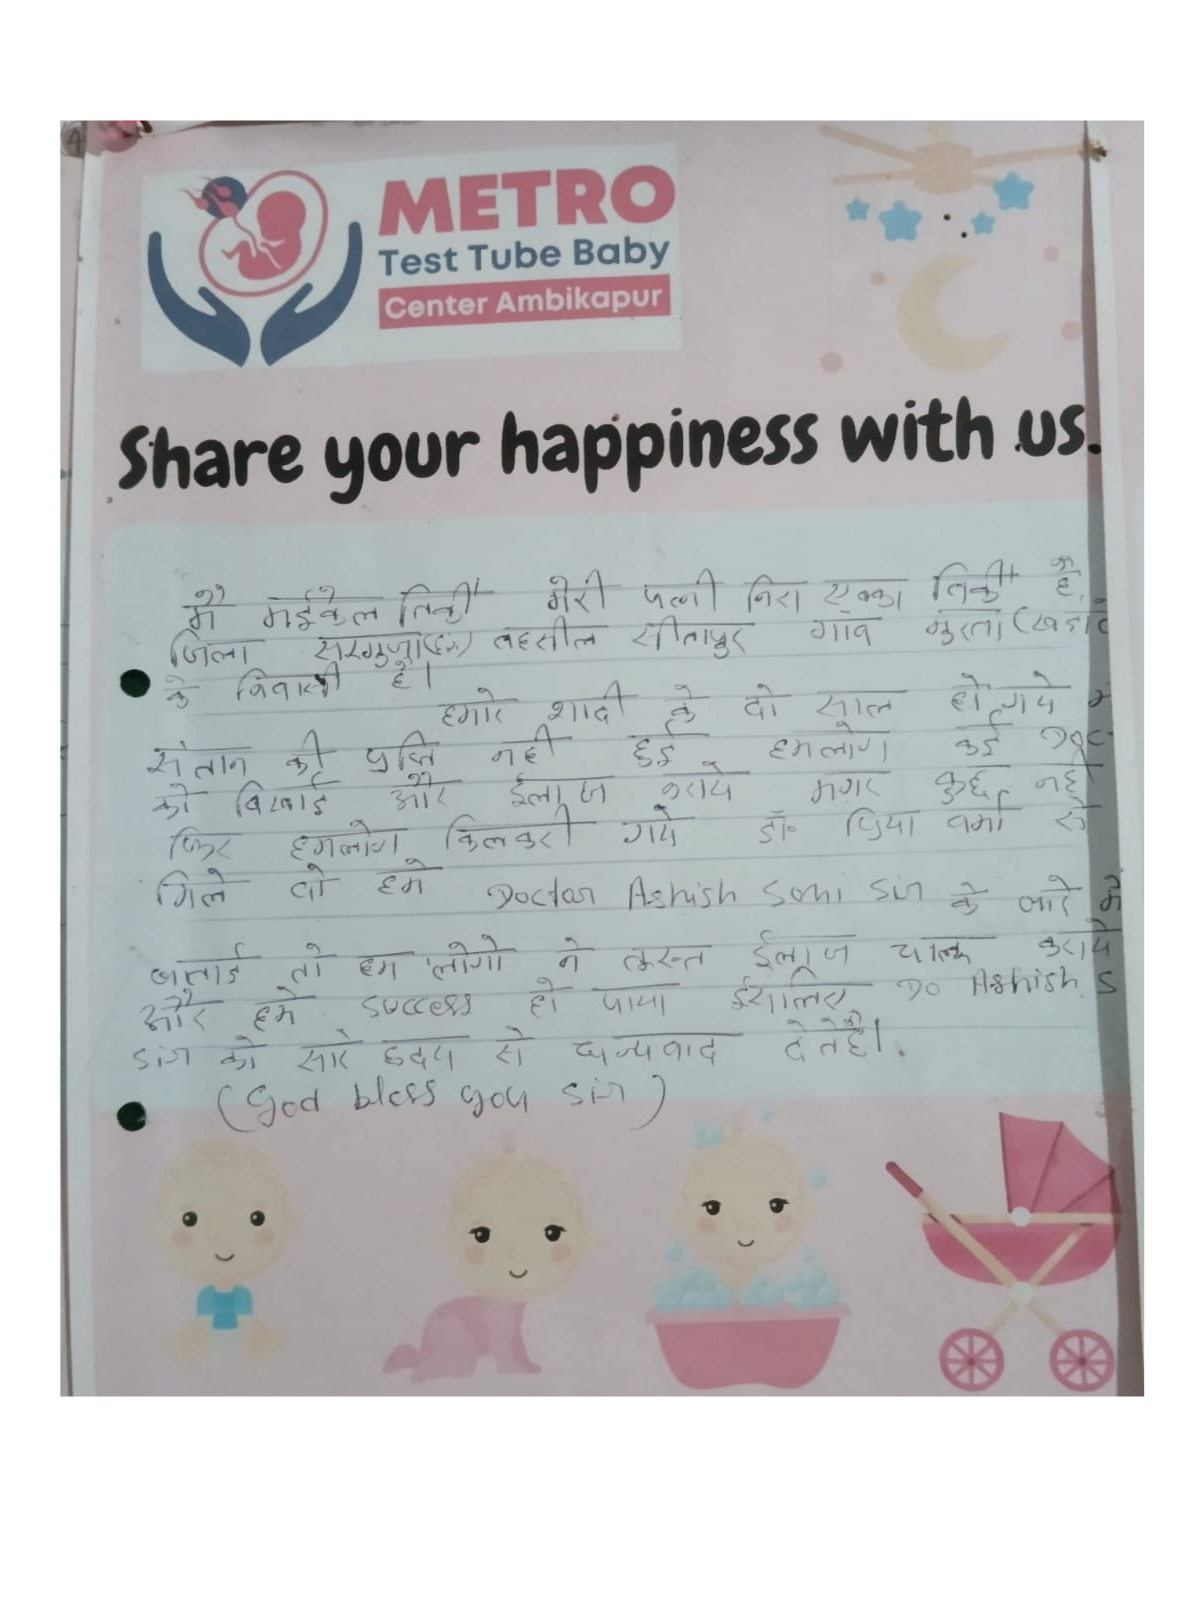 METRO
Test Tube Baby
Center Ambikapur
Share your happiness with us.
मै माईकेल तिर्की मेरी पत्नी निरा एक्का तिर्की है,
जिला सरगुजा तहसील सीतापुर गांव मुरता
के निवासी है।
हमारे शादी के दो साल हो गये
संतान की प्रप्ति नही हुई हमलोग कई
को दिखाई और ईलाज कराये मगर कुछ नही
फिर हमलोग किलकरी गये डॉ॰ प्रिया वर्मा से
मिले वो हमे Doctor Ashish Soni Sir के बारे मे
बताई तो हम लोगो ने तुरन्त ईलाज चालू कराये
और हमे success हो पाया ईसलिए Do Ashish S
Sir को सारे हृदय से धन्यवाद देते है।
(God bless you sir)